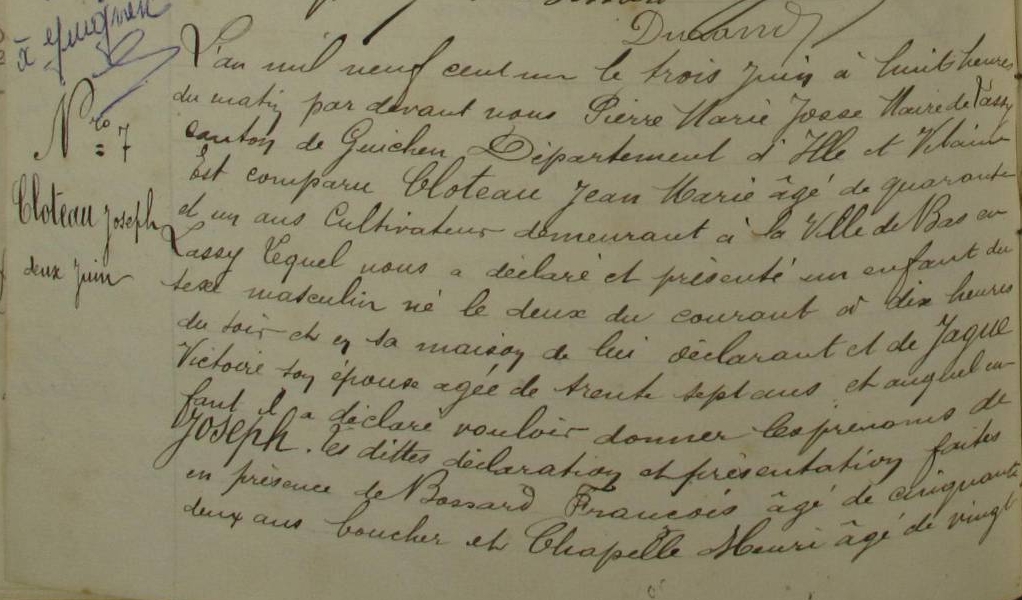 Durand
à Guignen
Nro 7
Cloteau Joseph
deux juin
L'an mil neuf cent un le trois juin à huit heures
du matin par devant nous Pierre Marie Josse Maire de Lassy
canton de Guichen Département d'Ille et Vilaine
Est comparu Cloteau Jean Marie âgé de quarante
et un ans Cultivateur demeurant à la Ville de Bas en
Lassy Lequel nous a déclaré et présenté un enfant du
sexe masculin né le deux du courant à dix heures
du soir et en sa maison de lui déclarant et de Jague
Victoire son épouse agée de trente sept ans et auquel en
fant il a déclaré vouloir donner les prénoms de
Joseph. Les dittes déclaration et présentation faites
en présence de Bossard François âgé de cinquante
deux ans boucher et Chapelle Henri âgé de vingt